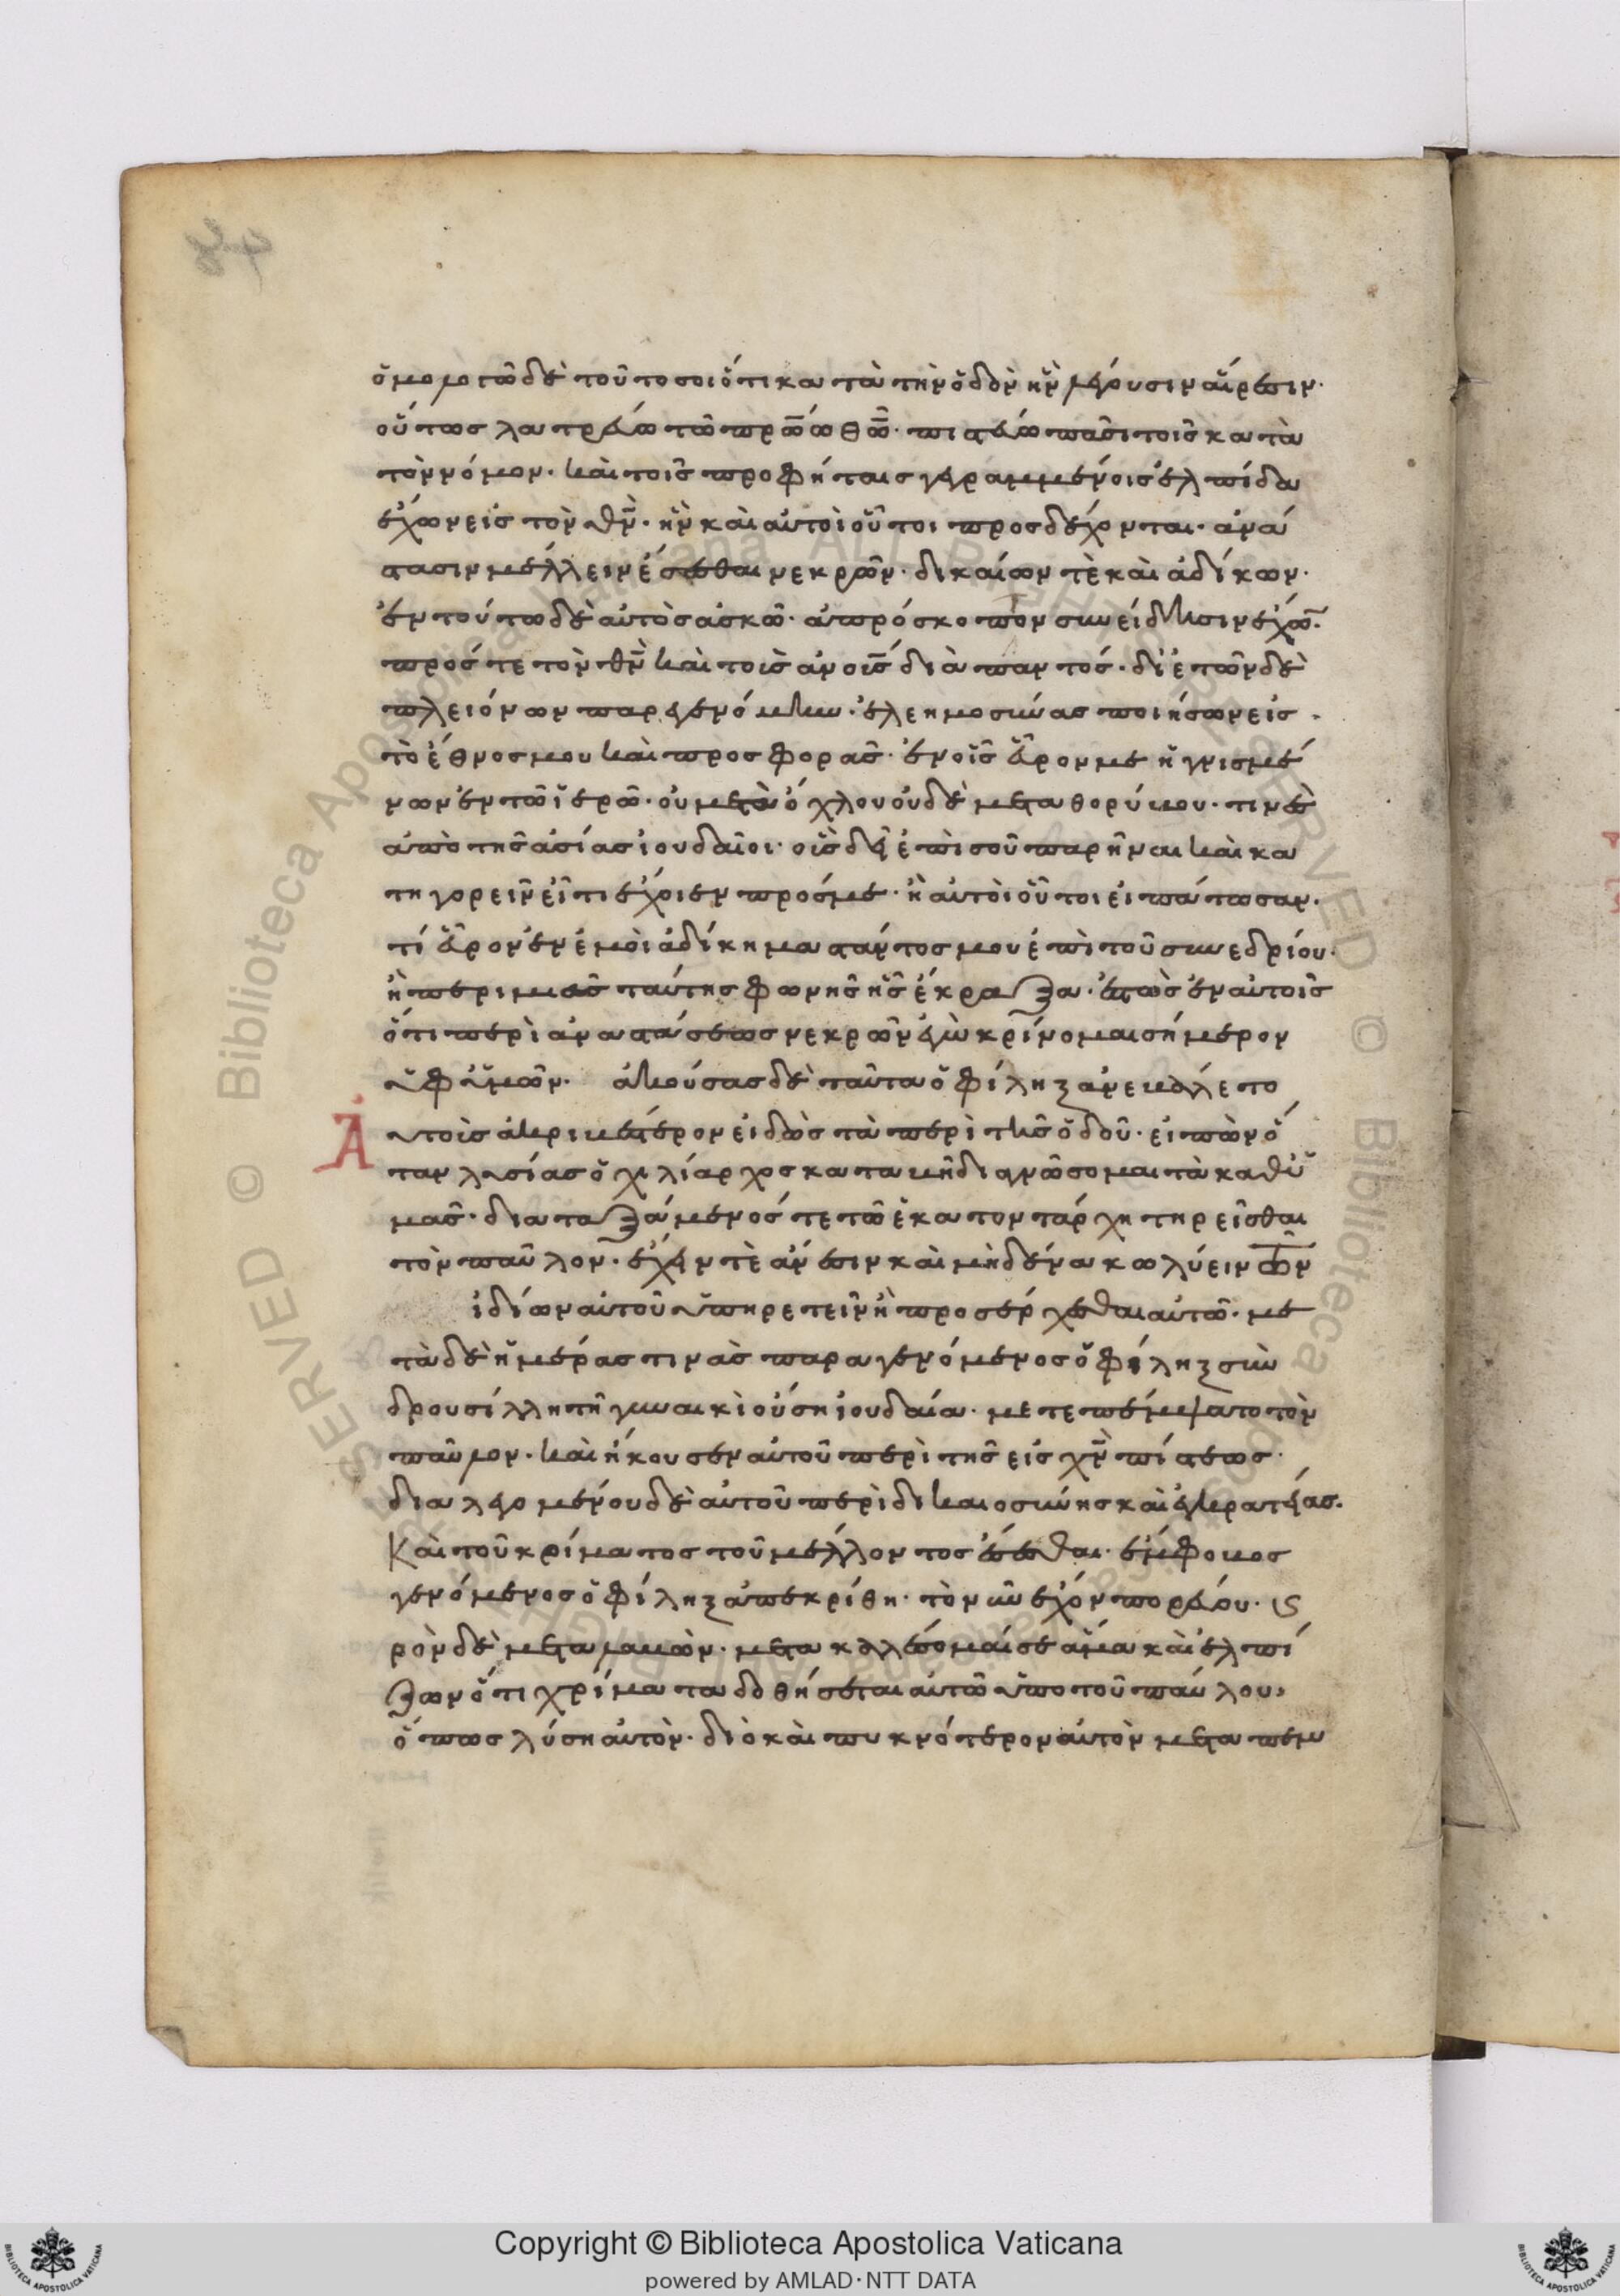 ὁμολογῶ δὲ τοῦτό σοι ὅτι κατὰ τὴν ὁδὸν ἣν λέγουσιν αἵρεσιν·
οὕτως λατρεύω τῶ πρώω θῶ· πιστεύω πᾶσι τοῖς κατὰ
τὸν νόμον· καὶ τοῖς προφήταις γεγραμμένοις ἐλπίδα
ἔχων εἰς τὸν θν· ἣν καὶ αὐτοὶ οὗτοι προσδέχονται· ἀνά
στασιν μέλλειν ἔσεσθαι νεκρῶν· δικαίων τὲ καὶ ἀδίκων·
ἐν τούτω δὲ αὐτὸς ἀσκῶ· ἀπρόσκοπον συνείδησιν ἔχων·
πρός τε τὸν θν καὶ τοὺς ἀνους διὰ παντός· δι' ἐτῶν δὲ
πλειόνων παρεγενόμην· ἐλεημοσύνας ποιήσων εἰς
τὸ ἔθνος μου καὶ προσφοράς· ἐν οἷς εὗρον με ἡγνισμέ
νων ἐν τῶ ἱερῶ· οὐ μετὰ ὄχλου οὐδὲ μετα θορύβου· τινὲς
ἀπὸ τῆς ἀσίας ἰουδαῖοι· οὓς δεῖ ἐπὶ σοῦ παρῆναι καὶ κα
τηγορεῖν εἴ τι ἔχοιεν πρός με· ἢ αὐτοὶ οὗτοι εἰπάτωσαν·
τί εὗρον ἐν ἐμοὶ ἀδίκημα στάντος μου ἐπὶ τοῦ συνεδρίου·
ἢ περι μιᾶς ταύτης φωνῆς ἧς ἔκραξα· ἑστὼς ἐν αὐτοῖς
ὅτι περὶ ἀναστάσεως νεκρῶν ἐγὼ κρίνομαι σήμερον
ὑφ' ὑμῶν· ἀκούσας δὲ ταῦτα ὁ φίληξ ἀνεβάλετο
Α υτοὺς ἀκριβέστερον εἰδὼς τὰ περὶ τῆς ὁδοῦ· εἰπὼν ὅ
ταν λυσίας ὁ χιλίαρχος καταβῆ διαγνώσομαι τὰ καθ' ὑ
μᾶς· διαταξάμενός τε τῶ ἑκατοντάρχη τηρεῖσθαι
τὸν παῦλον· ἔχειν τὲ ἄνεσιν καὶ μηδένα κωλύειν τῶν
ἰδίων αὐτοῦ ὑπηρετεῖν ἢ προσέρχεσθαι αὐτῶ· με
τὰ δὲ ἡμέρας τινὰς παραγενόμενος ὁ φίληξ σὺν
δρουσίλλη τῆ γυναικὶ οὔση ἰουδαία· μετεπέμψατο τὸν
παῦλον· καὶ ἤκουσεν αὐτοῦ περὶ τῆς εἰς χν πίστεως·
διαλεγομένου δὲ αὐτοῦ περὶ δικαιοσύνης καὶ ἐγκρατείας·
Καὶ τοῦ κρίματος τοῦ μέλλοντος ἔσεσθαι· ἔμφοβος
γενόμενος ὁ φίληξ ἀπεκρίθη· τὸ νῦν ἔχον πορεύου· και
ρὸν δὲ μεταλαβὼν· μετακαλέσομαί σε ἅμα καὶ ἐλπί
ζων ὅτι χρήματα δοθήσεται αὐτῶ ὑπο τοῦ παύλου,
ὅπως λύση αὐτὸν· διὸ καὶ πυκνότερον αὐτὸν μεταπεμ
Copyright © Biblioteca Apostolica Vaticana
powered by AMLAD·NTT DATA